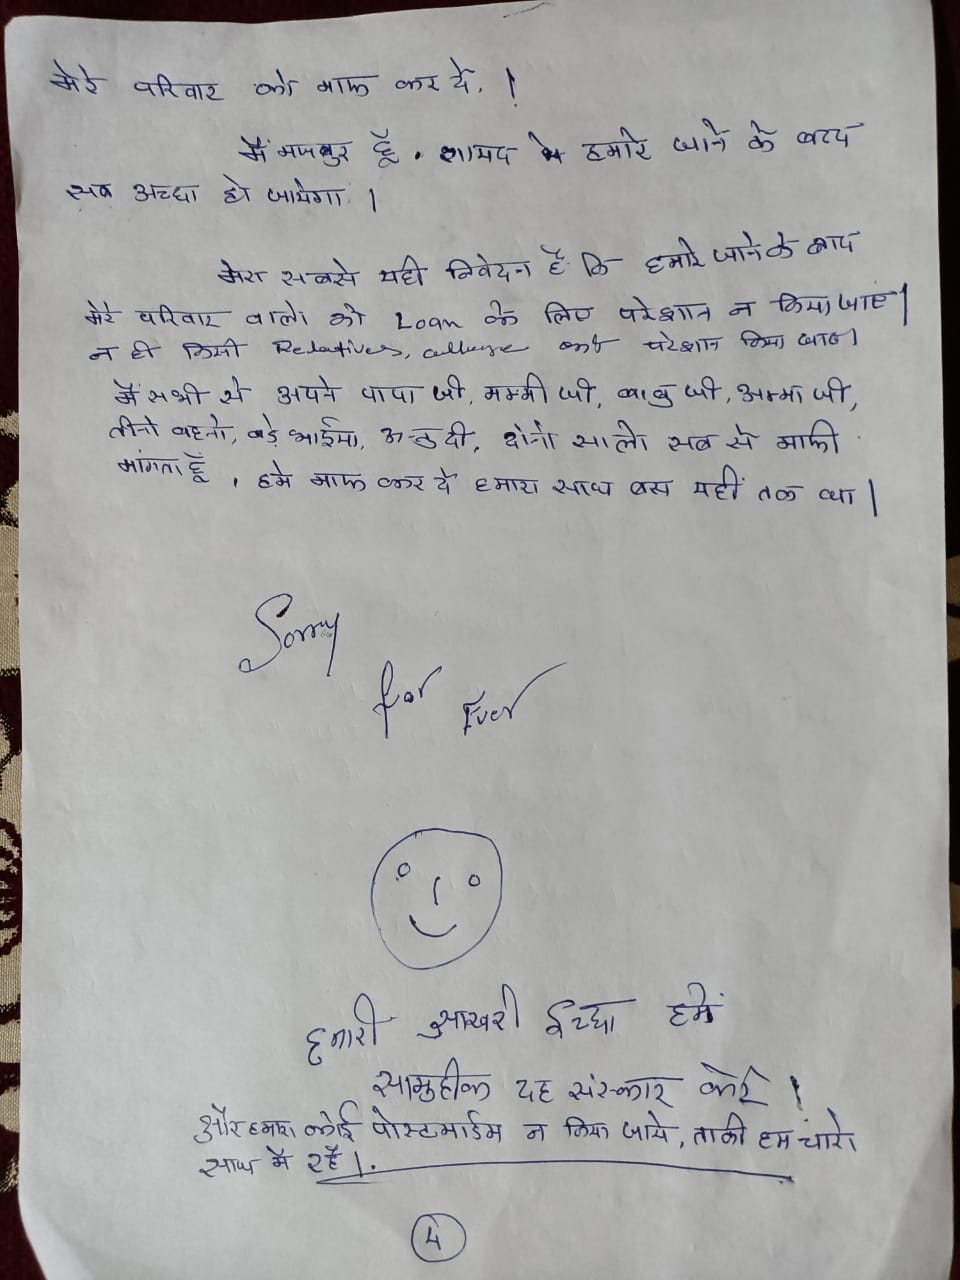 मेरे परिवार को माफ कर दें, !
मैं मजबुर हूँ, शायद हमारे जाने के बाद
सब अच्छा हो जायेगा ।
मेरा सबसे यही निवेदन है कि हमारे जाने के बाद
मेरे परिवार वालो को Loan के लिए परेशान न किया जाए।
न ही किसी Relatives, को परेशान किया जाए।
मैं सभी से अपने पापा जी, मम्मी जी, बाबु जी, अम्मा जी,
तीनो बहनो, बड़े भाईया, दी, दोनो सालो सब से माफी
मांगता हूँ, हमे माफ कर दे हमारा साथ बस यहीं तक था।
Sorry
for
Ever
हमारी आखरी ईच्छा हमें
सामुहीक दाह संस्कार करें !
और हमारा कोई पोस्टमार्डम न किया जाये, ताकी हम चारो
साथ में रहें।
4